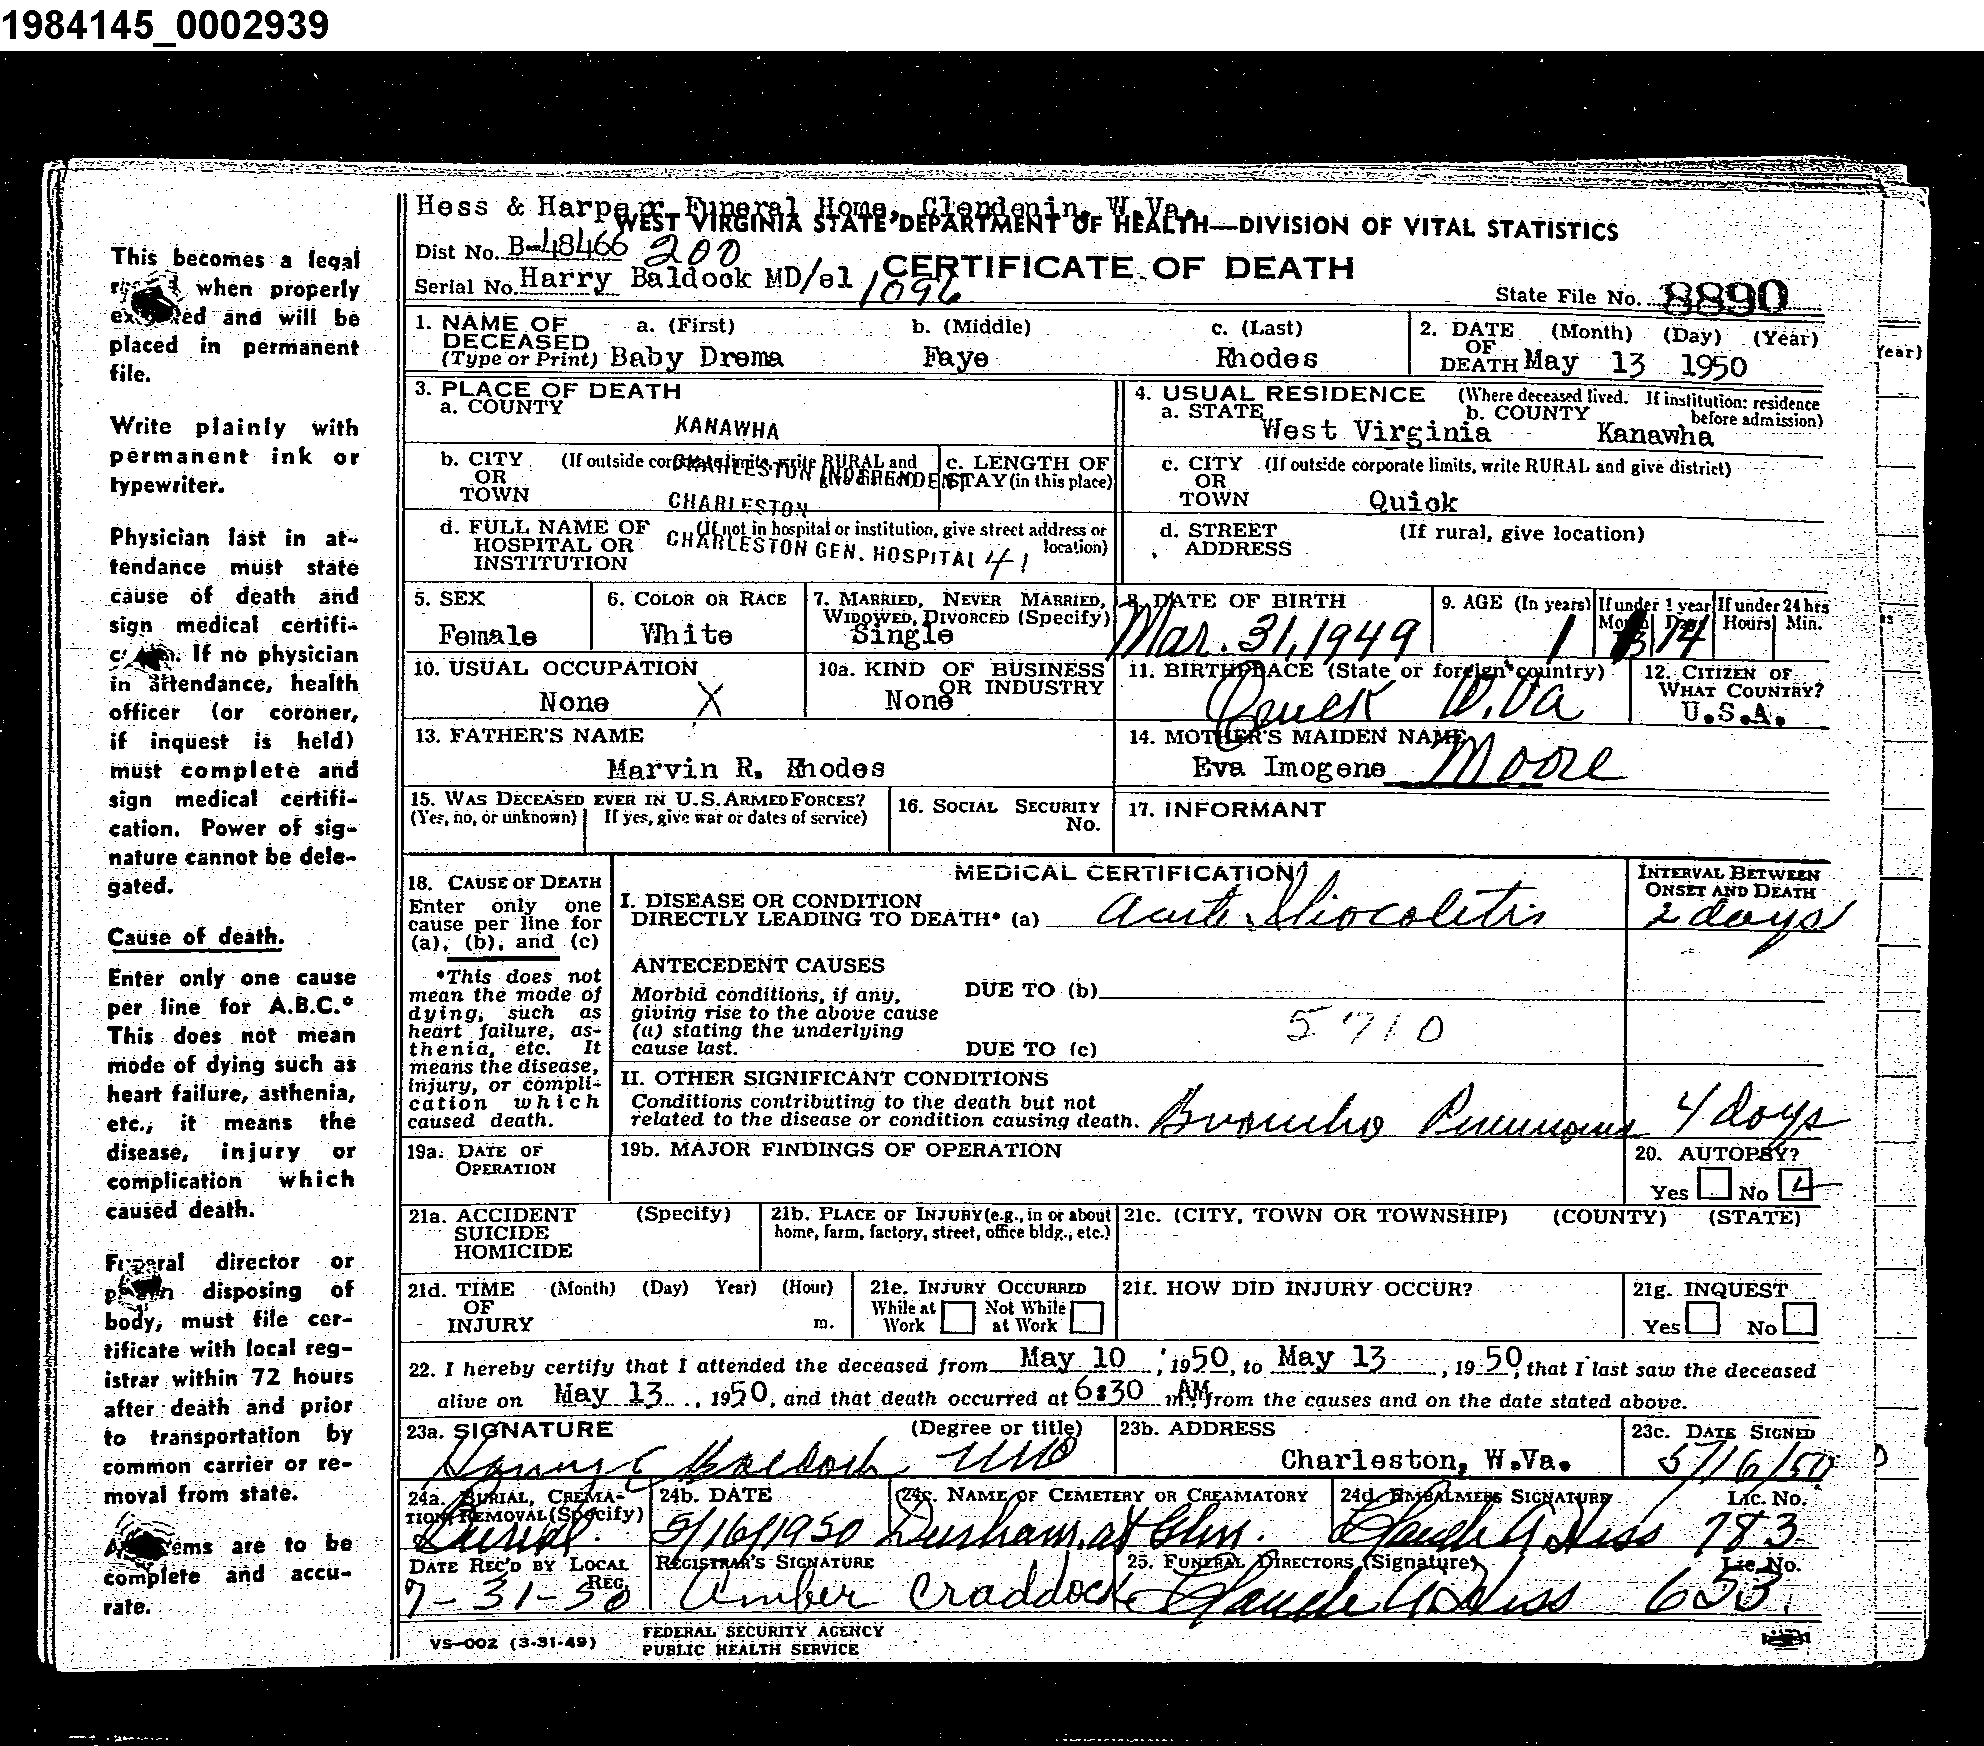 1984145_0002939
This becomes a legal
when properly
and will be
placed in permanent
file.
Write plainly with
permanent ink or
typewriter.
Physician last in at-
tendance must state
cause of death and
sign medical certifi-
If no physician
in attendance, health
officer (or coroner,
if inquest is held)
must complete and
sign medical certifi-
cation. Power of sig-
nature cannot be dele-
gated.
Cause of death.
Enter only one cause
per line for A.B.C.*
This does not mean
mode of dying such as
heart failure, asthenia,
etc., it means the
disease, injury or
complication which
caused death.
Funeral director or
disposing of
body, must file cer-
tificate with local reg-
istrar within 72 hours
after death and prior
to transportation by
common carrier or re-
moval from state.
are to be
complete and accu-
rate.
Hess & Harper Funeral Home, Clendenin, W.Va.
WEST VIRGINIA STATE DEPARTMENT OF HEALTH—DIVISION OF VITAL STATISTICS
Dist No. B-48466 200
CERTIFICATE OF DEATH
Serial No. Harry Baldock MD/el 1096
State File No. 8890
1. NAME OF DECEASED (Type or Print) a. (First) b. (Middle) c. (Last)
Baby Drema Faye Rhodes
2. DATE OF DEATH (Month) (Day) (Year)
May 13 1950
3. PLACE OF DEATH
a. COUNTY
KANAWHA
4. USUAL RESIDENCE (Where deceased lived. If institution: residence before admission)
a. STATE b. COUNTY
West Virginia Kanawha
b. CITY OR TOWN (If outside corporate limits, write RURAL and
CHARLESTON INDEPENDENT
CHARLESTON
c. LENGTH OF STAY (in this place)
c. CITY OR TOWN (If outside corporate limits, write RURAL and give district)
Quick
d. FULL NAME OF HOSPITAL OR INSTITUTION (If not in hospital or institution, give street address or location)
CHARLESTON GEN. HOSPITAL 41
d. STREET ADDRESS (If rural, give location)
5. SEX
Female
6. COLOR OR RACE
White
7. MARRIED, NEVER MARRIED, WIDOWED, DIVORCED (Specify)
Single
8. DATE OF BIRTH
Mar. 31, 1949
9. AGE (In years) If under 1 year If under 24 hrs
Hours Min.
1 14
10. USUAL OCCUPATION
None X
10a. KIND OF BUSINESS OR INDUSTRY
None
11. BIRTHPLACE (State or foreign country)
Quick W.Va
12. CITIZEN OF WHAT COUNTRY?
U.S.A.
13. FATHER'S NAME
Marvin R. Rhodes
14. MOTHER'S MAIDEN NAME
Eva Imogene Moore
15. WAS DECEASED EVER IN U.S. ARMED FORCES?
(Yes, no, or unknown) If yes, give war or dates of service)
16. SOCIAL SECURITY No.
17. INFORMANT
MEDICAL CERTIFICATION
18. CAUSE OF DEATH
Enter only one
cause per line for
(a), (b), and (c)
*This does not
mean the mode of
dying, such as
heart failure, as-
thenia, etc. It
means the disease,
injury, or compli-
cation which
caused death.
I. DISEASE OR CONDITION
DIRECTLY LEADING TO DEATH* (a) Acute Iliocolitis
INTERVAL BETWEEN ONSET AND DEATH
2 days
ANTECEDENT CAUSES
Morbid conditions, if any,
giving rise to the above cause
(a) stating the underlying
cause last.
DUE TO (b)
5710
DUE TO (c)
II. OTHER SIGNIFICANT CONDITIONS
Conditions contributing to the death but not
related to the disease or condition causing death. Broncho Pneumonia 4 days
19a. DATE OF OPERATION
19b. MAJOR FINDINGS OF OPERATION
20. AUTOPSY?
Yes No
21a. ACCIDENT SUICIDE HOMICIDE (Specify)
21b. PLACE OF INJURY (e.g., in or about
home, farm, factory, street, office bldg., etc.)
21c. (CITY, TOWN OR TOWNSHIP) (COUNTY) (STATE)
21d. TIME OF INJURY (Month) (Day) Year) (Hour) m.
21e. INJURY OCCURRED
While at Work Not While at Work
21f. HOW DID INJURY OCCUR?
21g. INQUEST
Yes No
22. I hereby certify that I attended the deceased from May 10, 1950, to May 13, 1950, that I last saw the deceased
alive on May 13, 1950, and that death occurred at 6:30 AM m., from the causes and on the date stated above.
23a. SIGNATURE (Degree or title)
Harry C Baldock MD
23b. ADDRESS
Charleston, W.Va.
23c. DATE SIGNED
5/16/50
24a. BURIAL, CREMA-
TION, REMOVAL (Specify)
Burial.
24b. DATE
5/16/1950
24c. NAME OF CEMETERY OR CREAMATORY
Durham at
24d. EMBALMERS SIGNATURE Lic. No.
Claude A Hess 783
DATE REC'D BY LOCAL REG.
7-31-50
REGISTRAR'S SIGNATURE
Amber Craddock
25. FUNERAL DIRECTORS (Signature) Lic. No.
Claude A Hess 653
VS-002 (3-31-49)
FEDERAL SECURITY AGENCY
PUBLIC HEALTH SERVICE
Year)